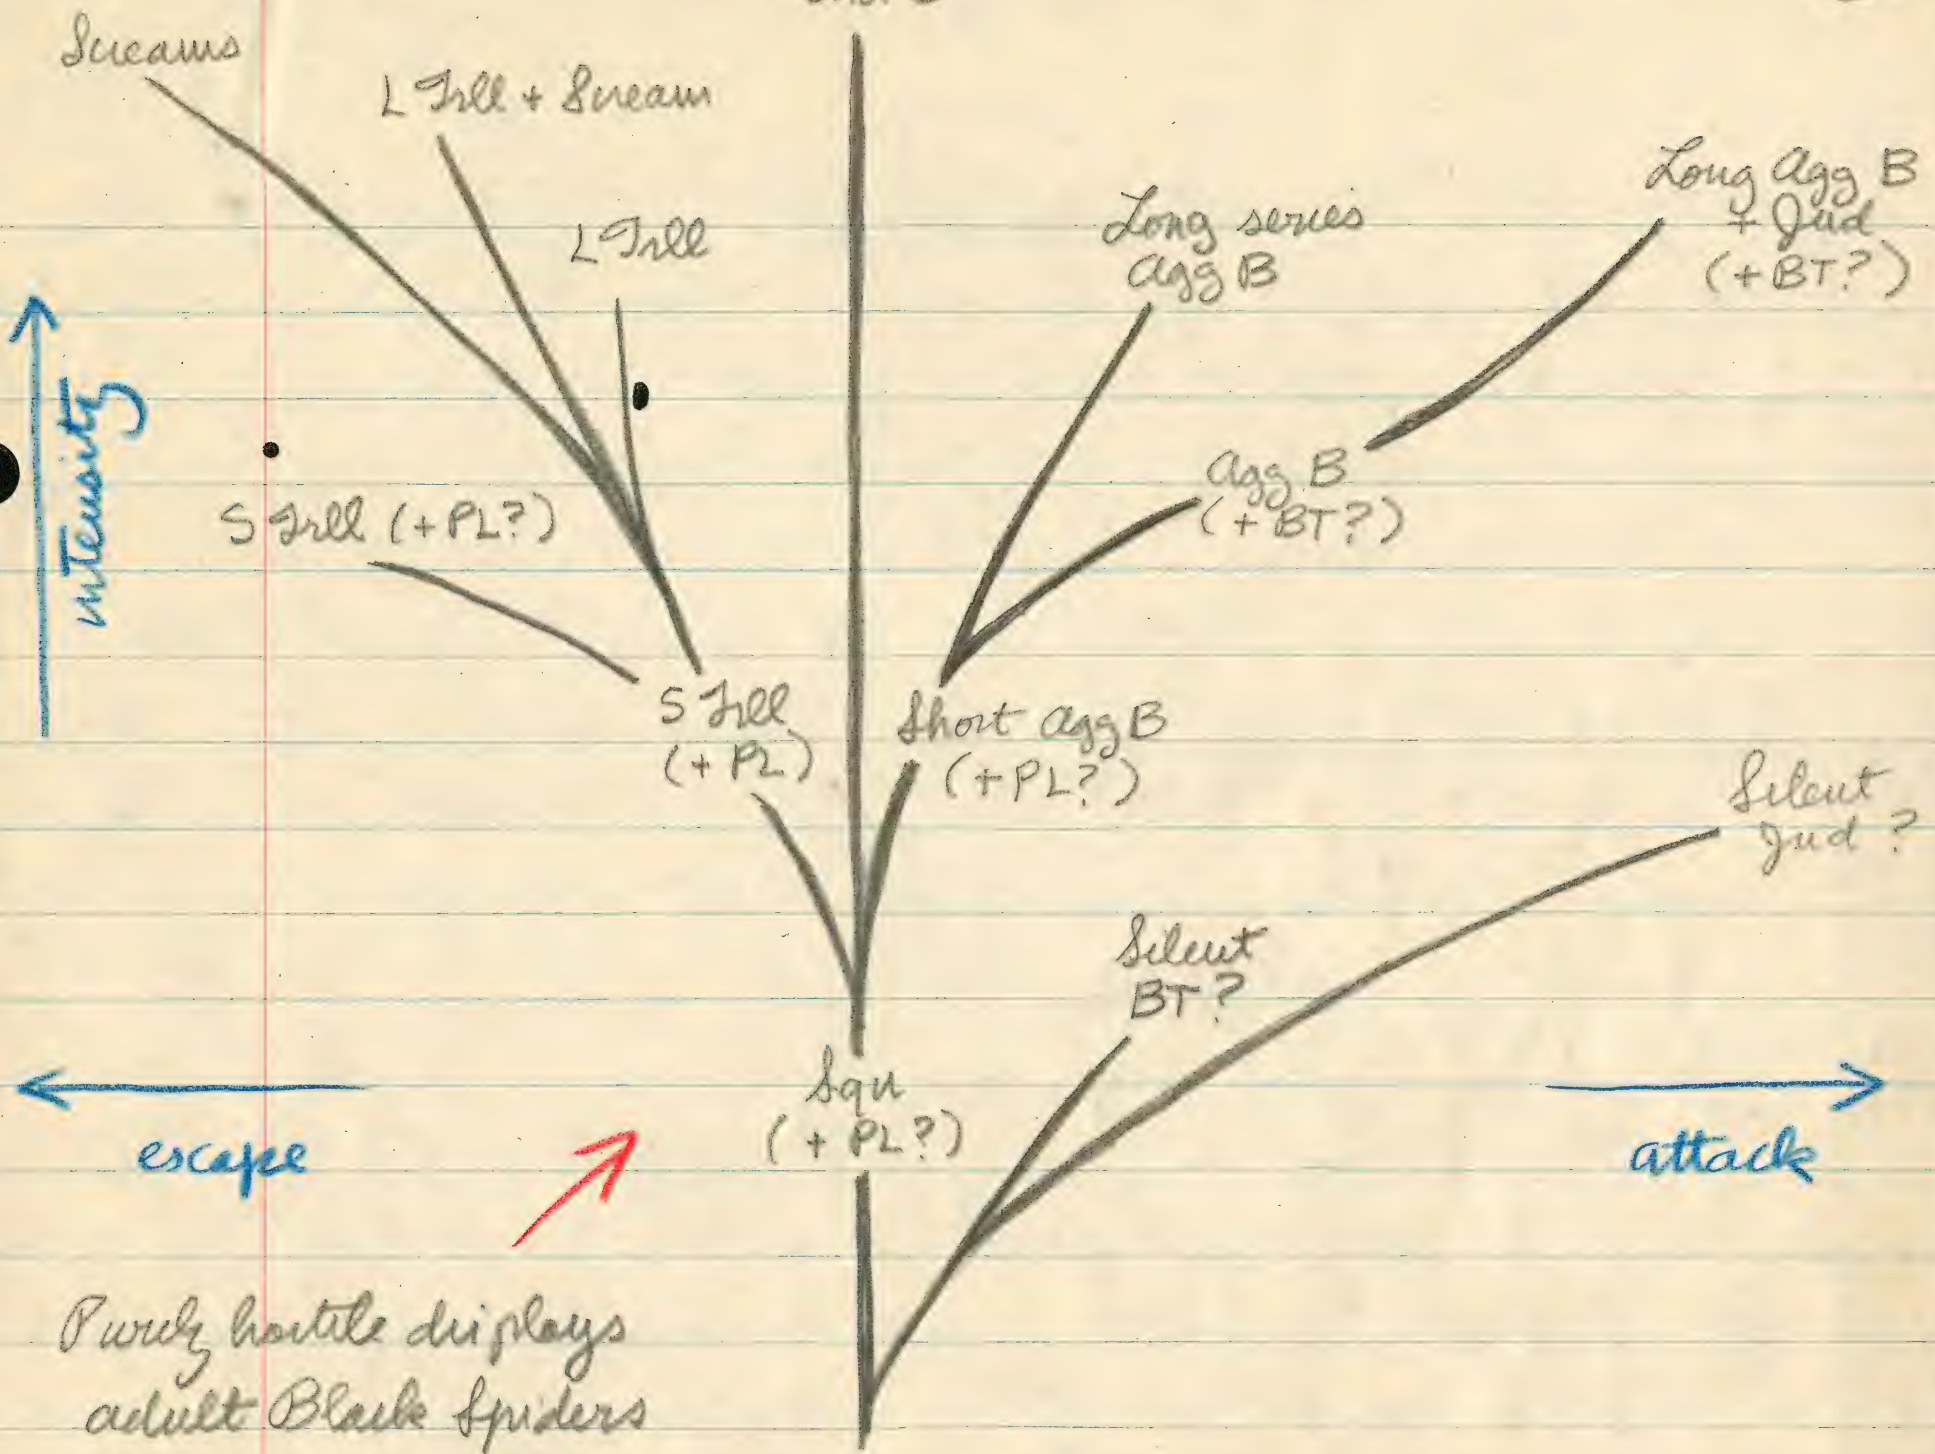 Screams
L Trll + Scream
L Trll
Long series
Agg B
Long Agg B
+ Jud
(+ BT?)
intensity
S Trll (+ PL?)
Agg B
(+ BT?)
S Trll
(+ PL)
Short Agg B
(+ PL?)
Silent
Jud ?
Silent
BT ?
Squ
(+ PL?)
escape
attack
Purely hostile displays
adult Black Spiders